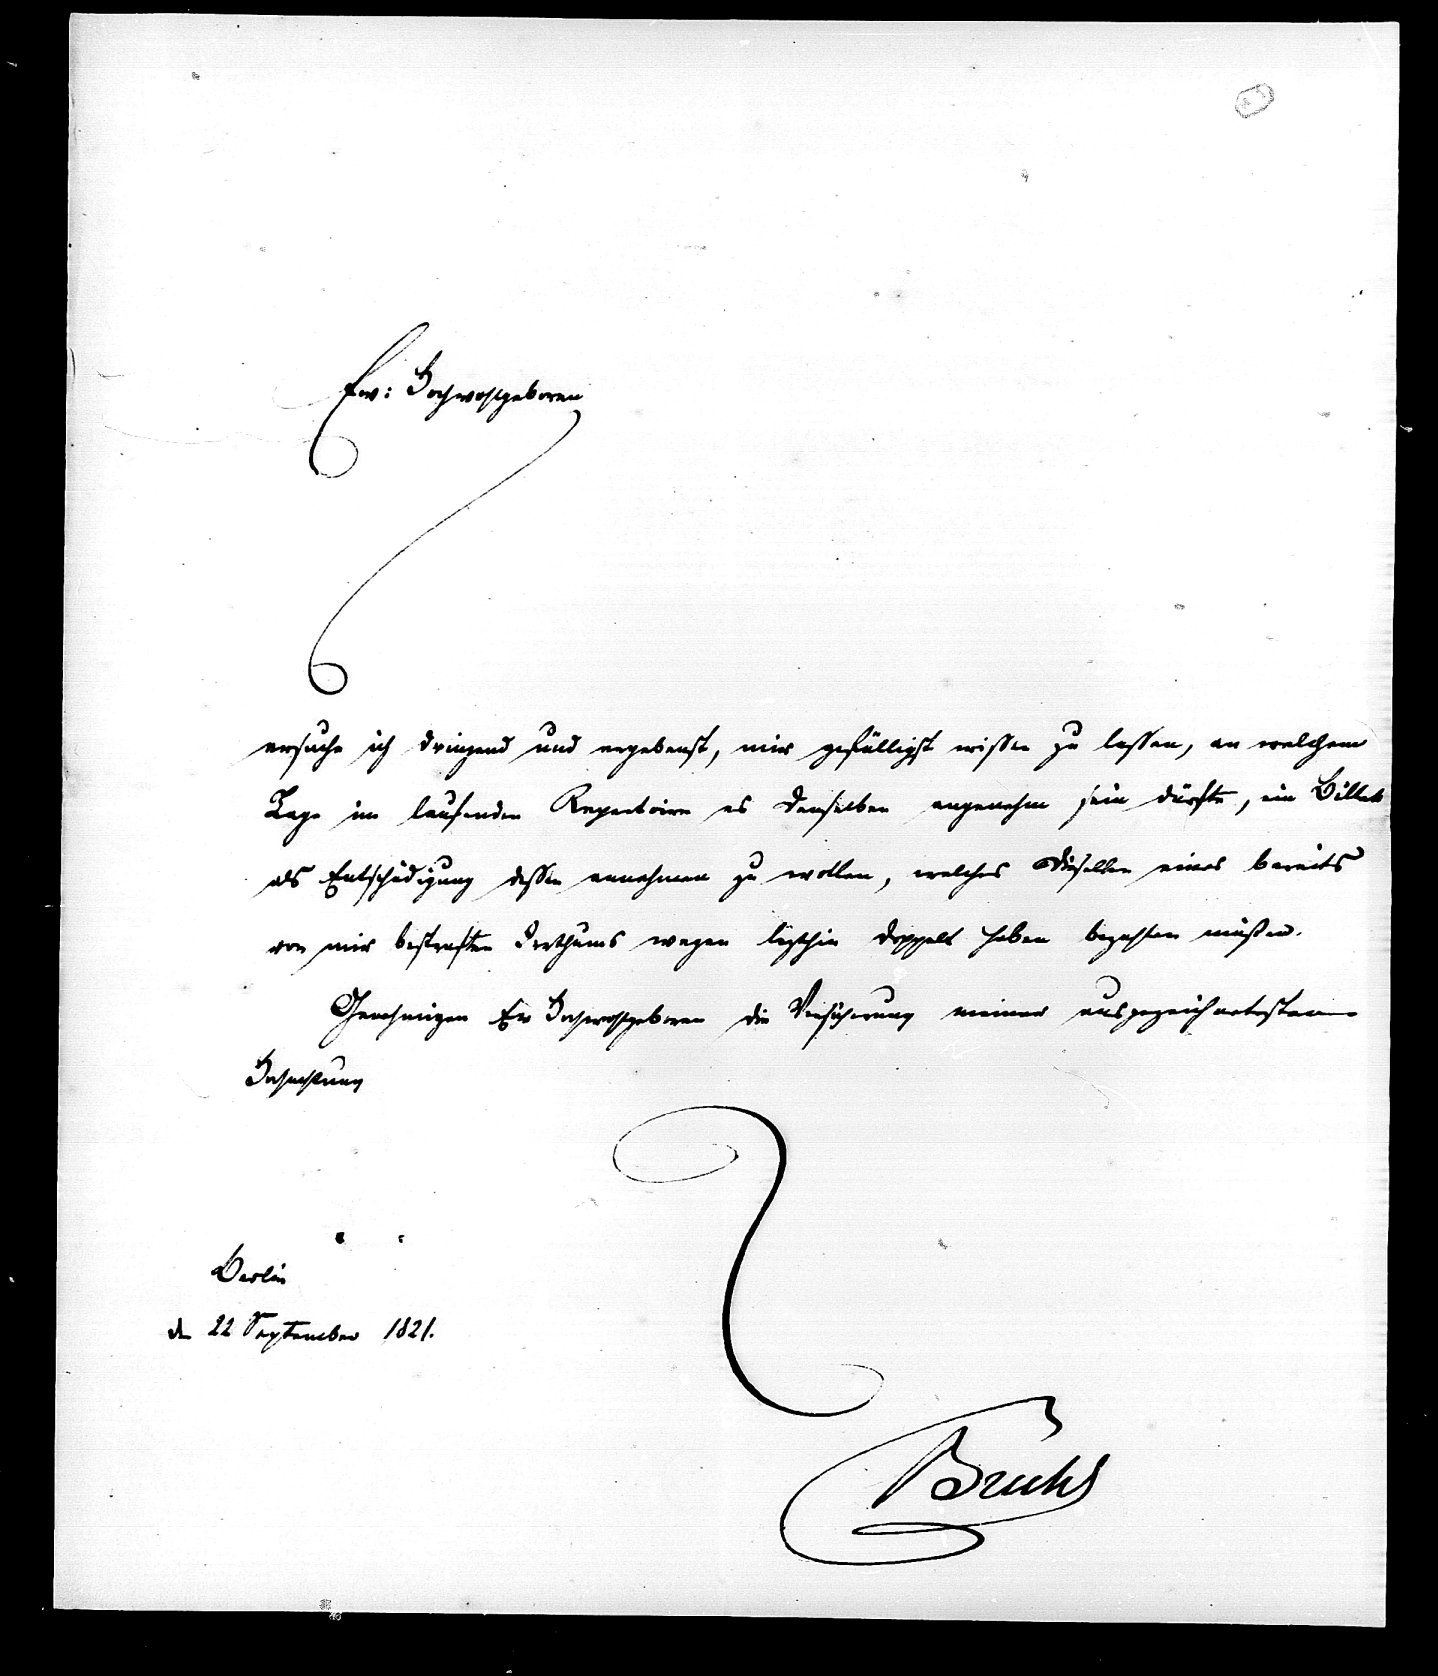 Ew: Hochwohlgeboren
ersuche ich dringend und ergebenst, mir gefälligst wißen zu laßen, an welchem
Tage im laufenden Repertoire es Denselben angenehm sein dürfte, ein Billet
als Entschädigung deßen annehmen zu wollen, welches Dieselben eines bereits
von mir bestraften Irrthums wegen letzthin doppelt haben bezahlen müßen.
Genehmigen Ew Hochwohlgeboren die Versicherung meiner ausgezeichnetesten
Hochachtung
Berlin
den 22 September 1821.
Brühl